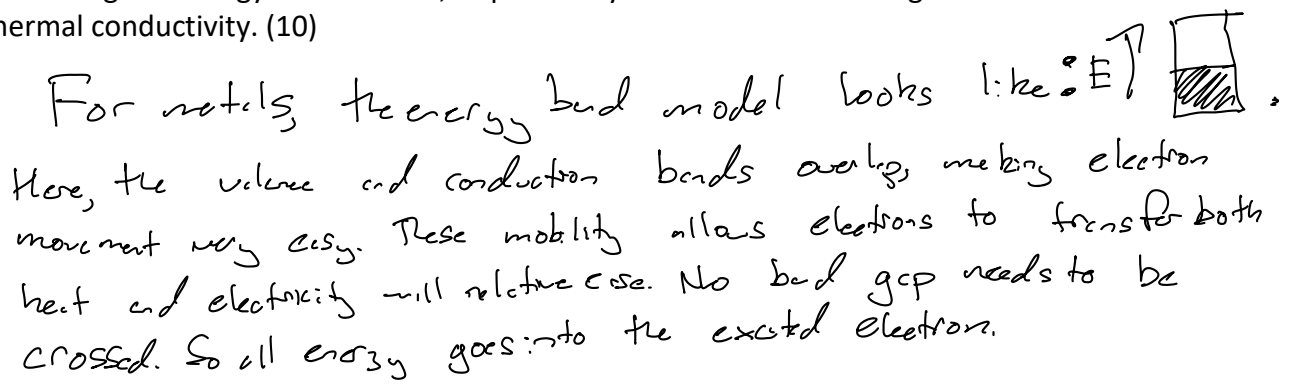 thermal conductivity. (10)
For metals, the energy band model looks like: E
Here, the valence and conduction bands overlap, making electron
movement very easy. These mobility allows electrons to transfer both
heat and electricity will relative ease. No band gap needs to be
crossed. So all energy goes into the excited electron.